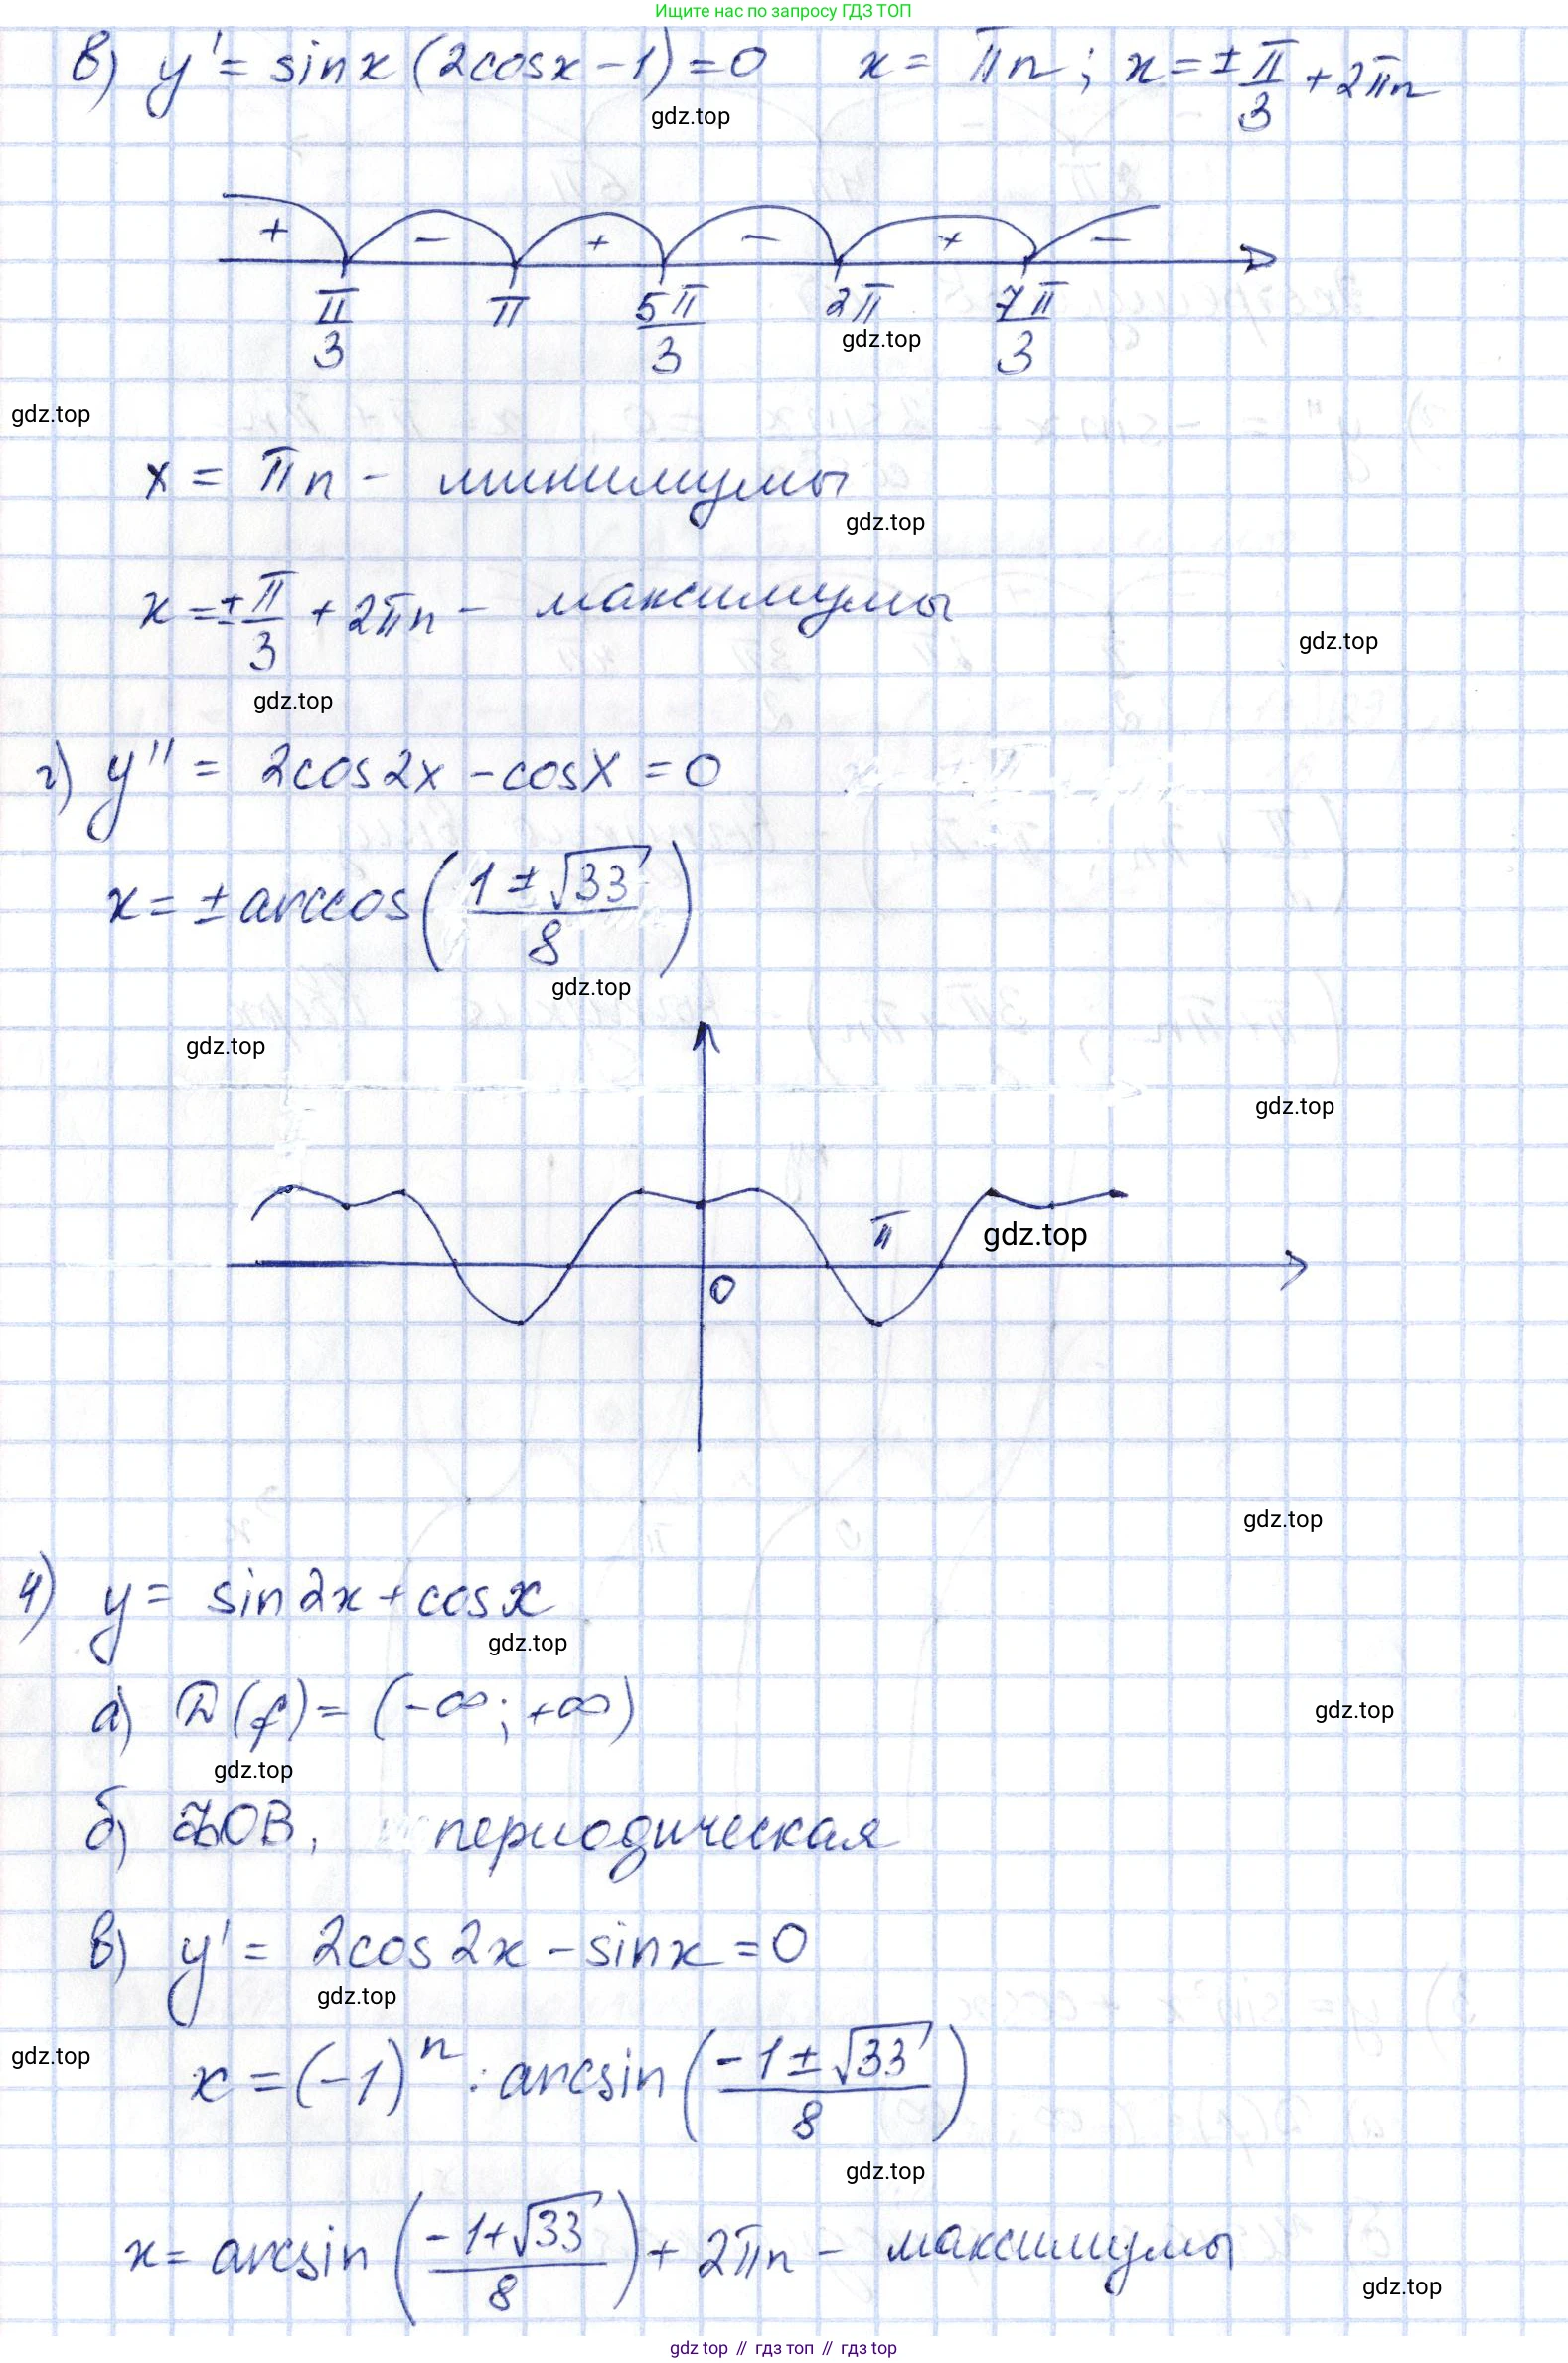 Ищите нас по запросу ГДЗ ТОП
в) y' = sinx (2cosx − 1) = 0   x = πn; x = ±π/3 + 2πn
gdz.top
+ − + − + −
π/3   π   5π/3   2π   7π/3
gdz.top
gdz.top
x = πn − минимумы
gdz.top
x = ±π/3 + 2πn − максимумы
gdz.top
gdz.top
г) y'' = 2cos2x − cosx = 0
x = ± arccos((1 ± √33)/8)
gdz.top
gdz.top
gdz.top
π
gdz.top
0
gdz.top
4) y = sin2x + cosx
gdz.top
а) D(f) = (−∞; +∞)
gdz.top
gdz.top
б) ФОВ, периодическая
в) y' = 2cos2x − sinx = 0
gdz.top
gdz.top
x = (−1)ⁿ · arcsin((−1 ± √33)/8)
gdz.top
x = arcsin((−1+√33)/8) + 2πn − максимумы
gdz.top
gdz top // гдз топ // гдз top